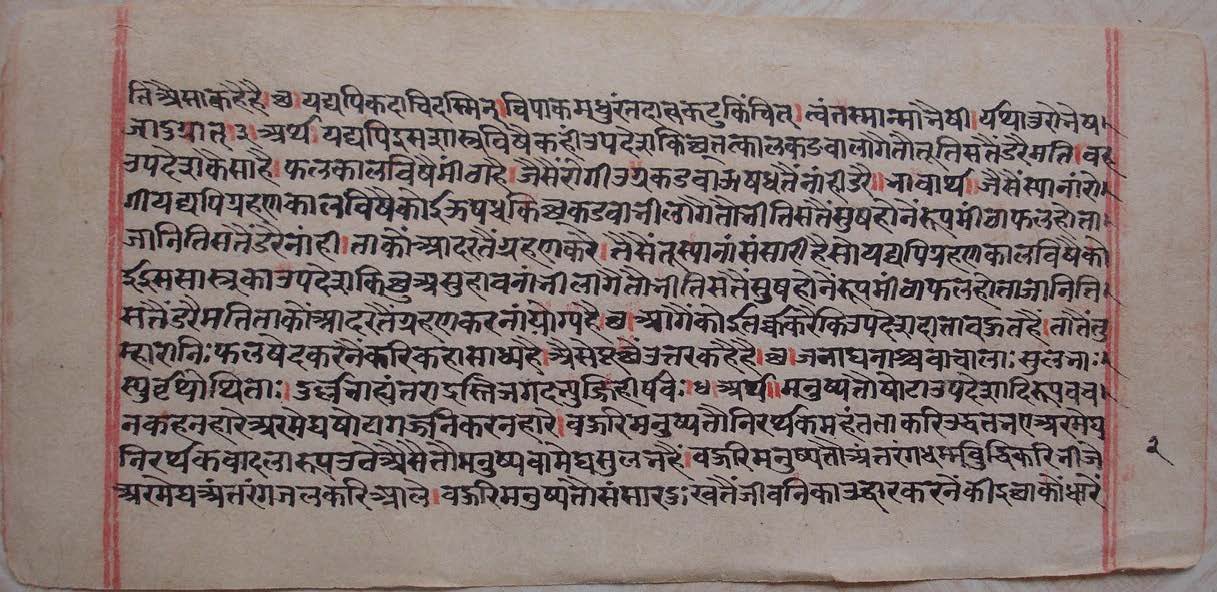 तिअैसाकहैहै छ यद्यपिकदाचिदस्मिन् विपाकमधुरंतदात्वकटुकिंचित्। त्वंतस्मान्माभैषी। र्यथातुरोभेष।
जादुग्रात् ३ अर्थ यद्यपिइसशास्त्रविषैकहीउपदेशकिछूतत्कालकडवालागैतौतूतिसतैडरैमति। यह
उपदेशकैसाहै। फलकालविषैमीठाहै। जैसैंरोगीउग्रकडवाअषधतैनांहीडरै॥ भावार्थ जैसैंस्यानांरो।
गीयद्यपिग्रहणकालविषैकोईऊषधकिछूकडवाभीलागैतौभीतिसतैंसुषहोनेंरूपमीठाफलहोता।
जानितिसतैंडरैनांही। ताकौंआदरतैंग्रहणकरै। तैसैंतूस्यानांसंसारीहैसोयद्यपिग्रहणकालविषैको
ईइससास्त्रकाउपदेशकिछुअसुहावनांभीलागैतौभीतिसतैंसुषहोनैंरूपमीठाफलहोताजानिति।
सतैंडरैमतिताकौंआदरतैंग्रहणकरनांयोग्यहै छ आगैकोईतर्ककरैकिउपदेशदातातौबहुतहै। तातैंतु
म्हारानिःफलषेदकरनैंकरिकहासाध्यहै अैसेंपूछैंउत्तरकहैहै। छ जनाघनाश्चवाचालाः सुलभाः।
स्युर्वृथोत्थिताः दुर्लभाह्यंतरार्द्रास्तेजगदभ्युज्जिहीर्षवः ४ अर्थ॥ मनुष्यतौषोटाउपदेशादिरूपवच।
नकहनहारेअरमेघषोटागर्जनिकरनहारे। बहुरिमनुष्यतौनिरर्थकमहंतताकरिउद्धतभएअरमेघ
निरर्थकबादलारूपउठेअैसेतौमनुष्यवामेघसुलभहैं। बहुरिमनुष्यतौअंतरंगधर्मबुद्धिकरिभीजे
अरमेघअंतरंगजलकरिआले। बहुरिमनुष्यतौसंसारदुःखतैंजीवनिकाउद्धारकरनेंकीइच्छाकौंधारैं
२